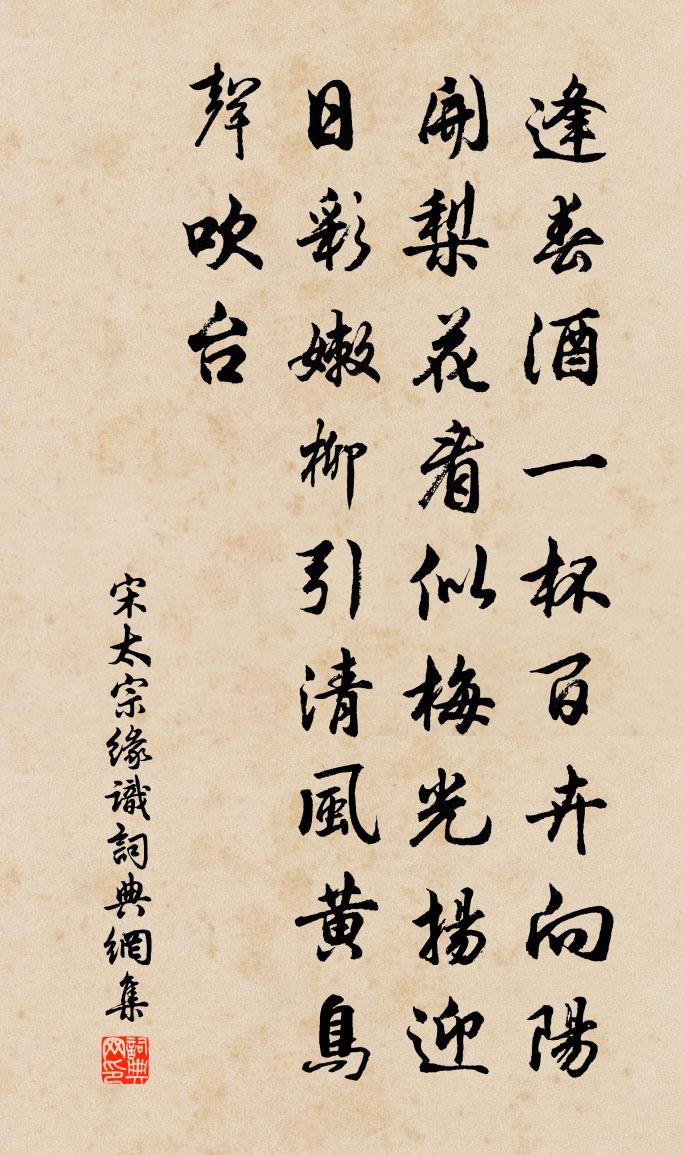 逢春酒一杯百卉向陽
開梨花看似梅光揚迎
日彩嫩柳引清風黄鳥
聲吹台
宋太宗緣識詞典網集
詞典
网印